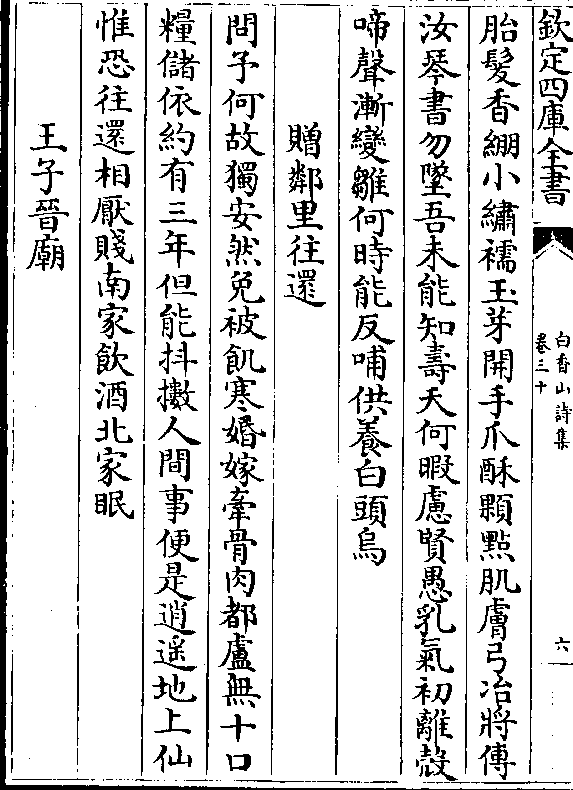 欽定四庫全書
白香山詩集
卷三十
六
胎髮香繃小繡襦玉芽開手爪酥顆㸃肌膚弓冶將傳
汝琴書勿墜吾未能知壽夭何暇慮賢愚乳氣初離殻
啼聲漸變雛何時能反哺供養白頭烏
贈鄰里往還
問予何故獨安然免被飢寒婚嫁牽骨肉都盧無十口
糧儲依約有三年但能抖擻人間事便是逍遥地上仙
惟恐往還相厭賤南家飲酒北家眠
王子晉廟